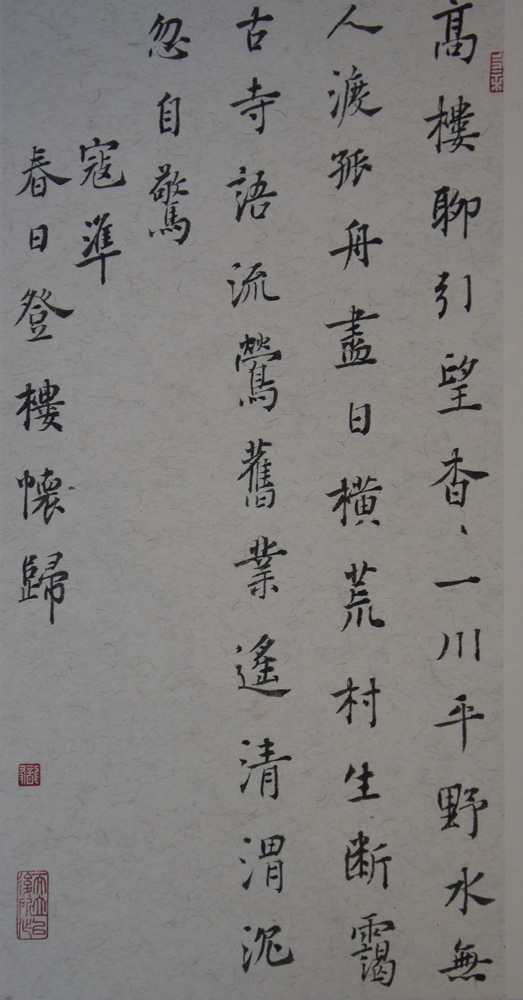 高樓聊引望杳〻一川平野水無
人渡孤舟盡日橫荒村生断靄
古寺語流鶯舊業遙清渭沉
忽自驚
寇準
春日登樓懷歸